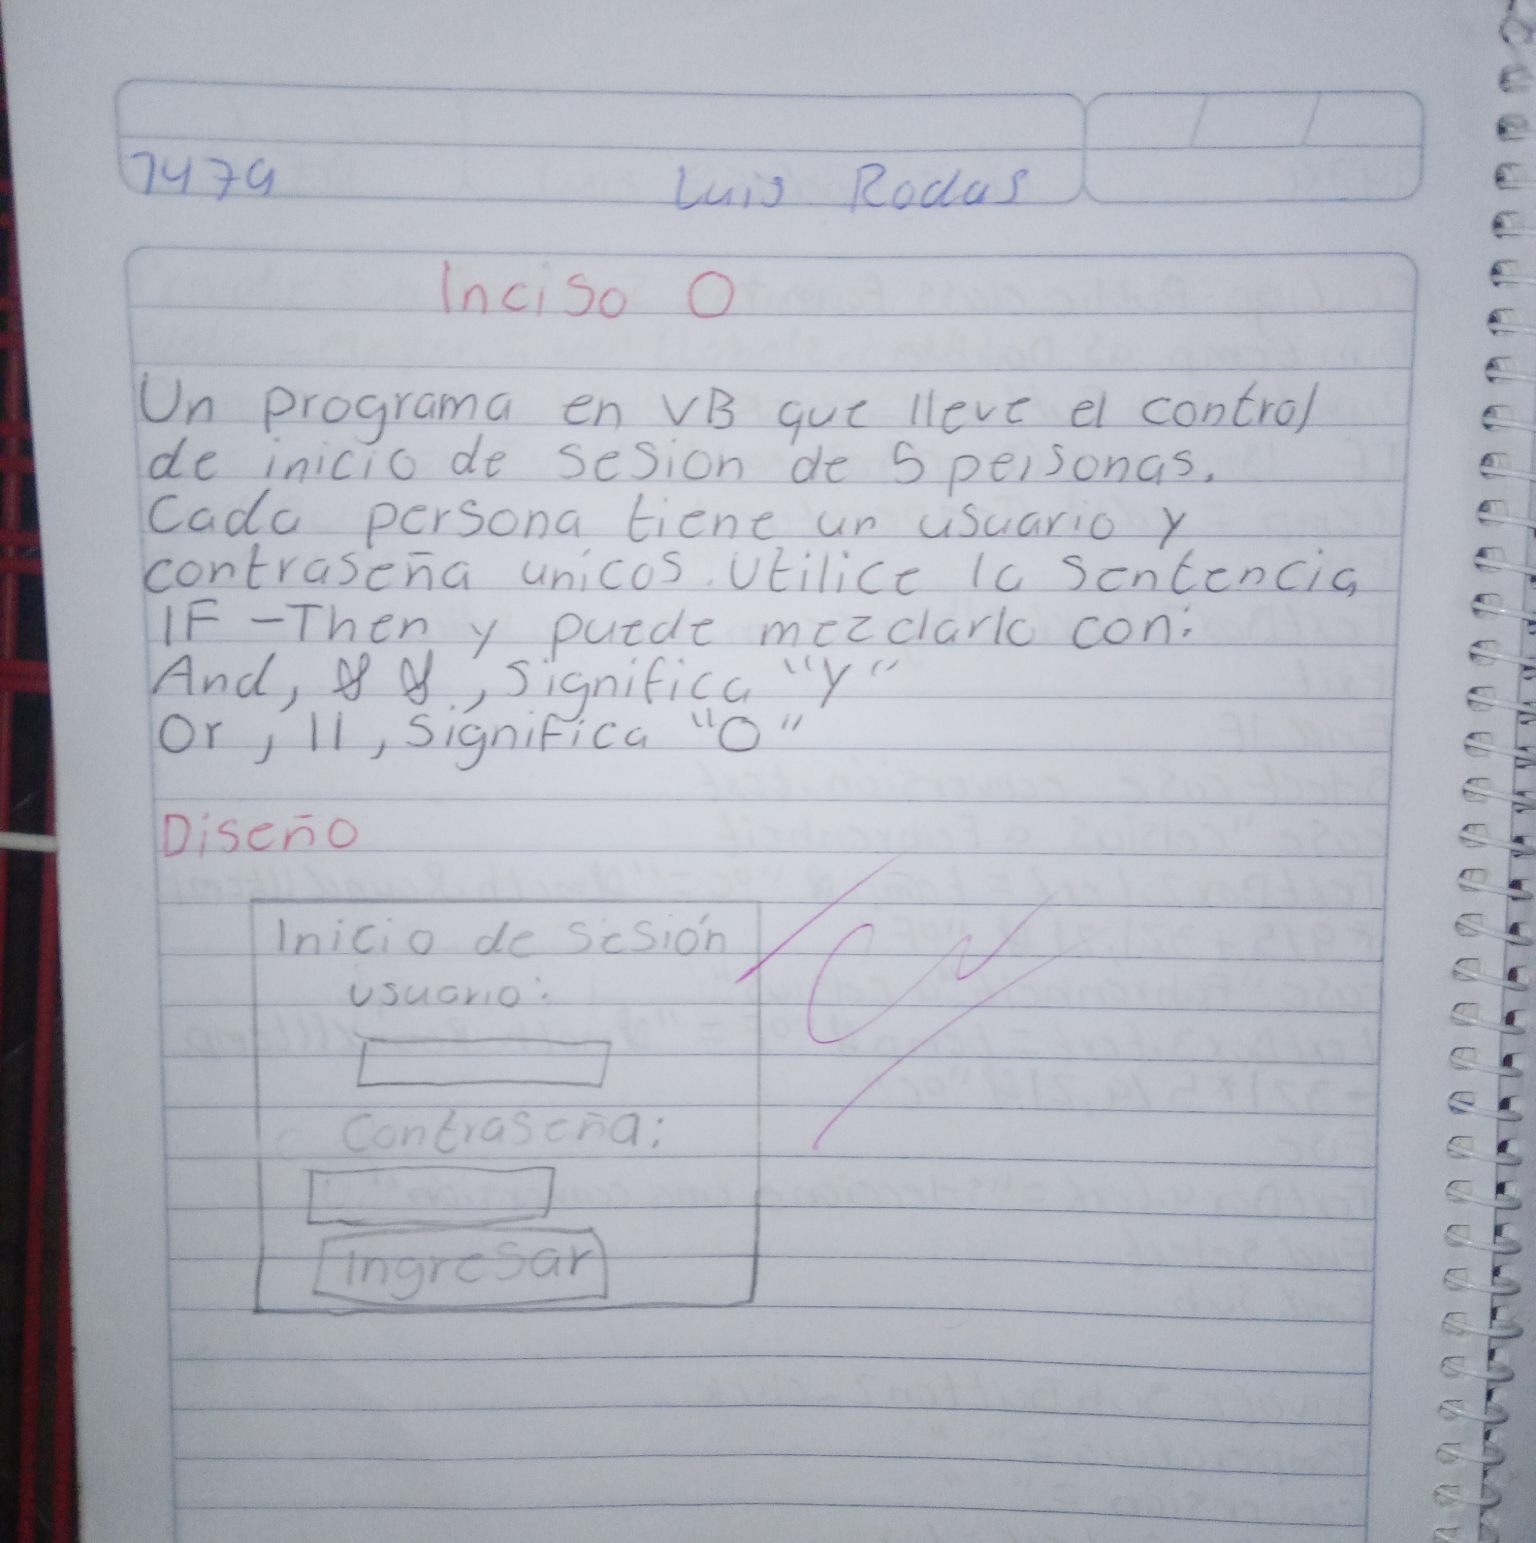 7479 Luis Rodas
Inciso O
Un programa en VB que lleve el control
de inicio de sesion de 5 personas.
Cada persona tiene un usuario y
contraseña unicos. Utilice la sentencia
IF - Then y puede mezclarlo con:
And, &&, significa "Y"
Or, ||, significa "O"
Diseño
Inicio de sesión
usuario:
Contraseña:
Ingresar